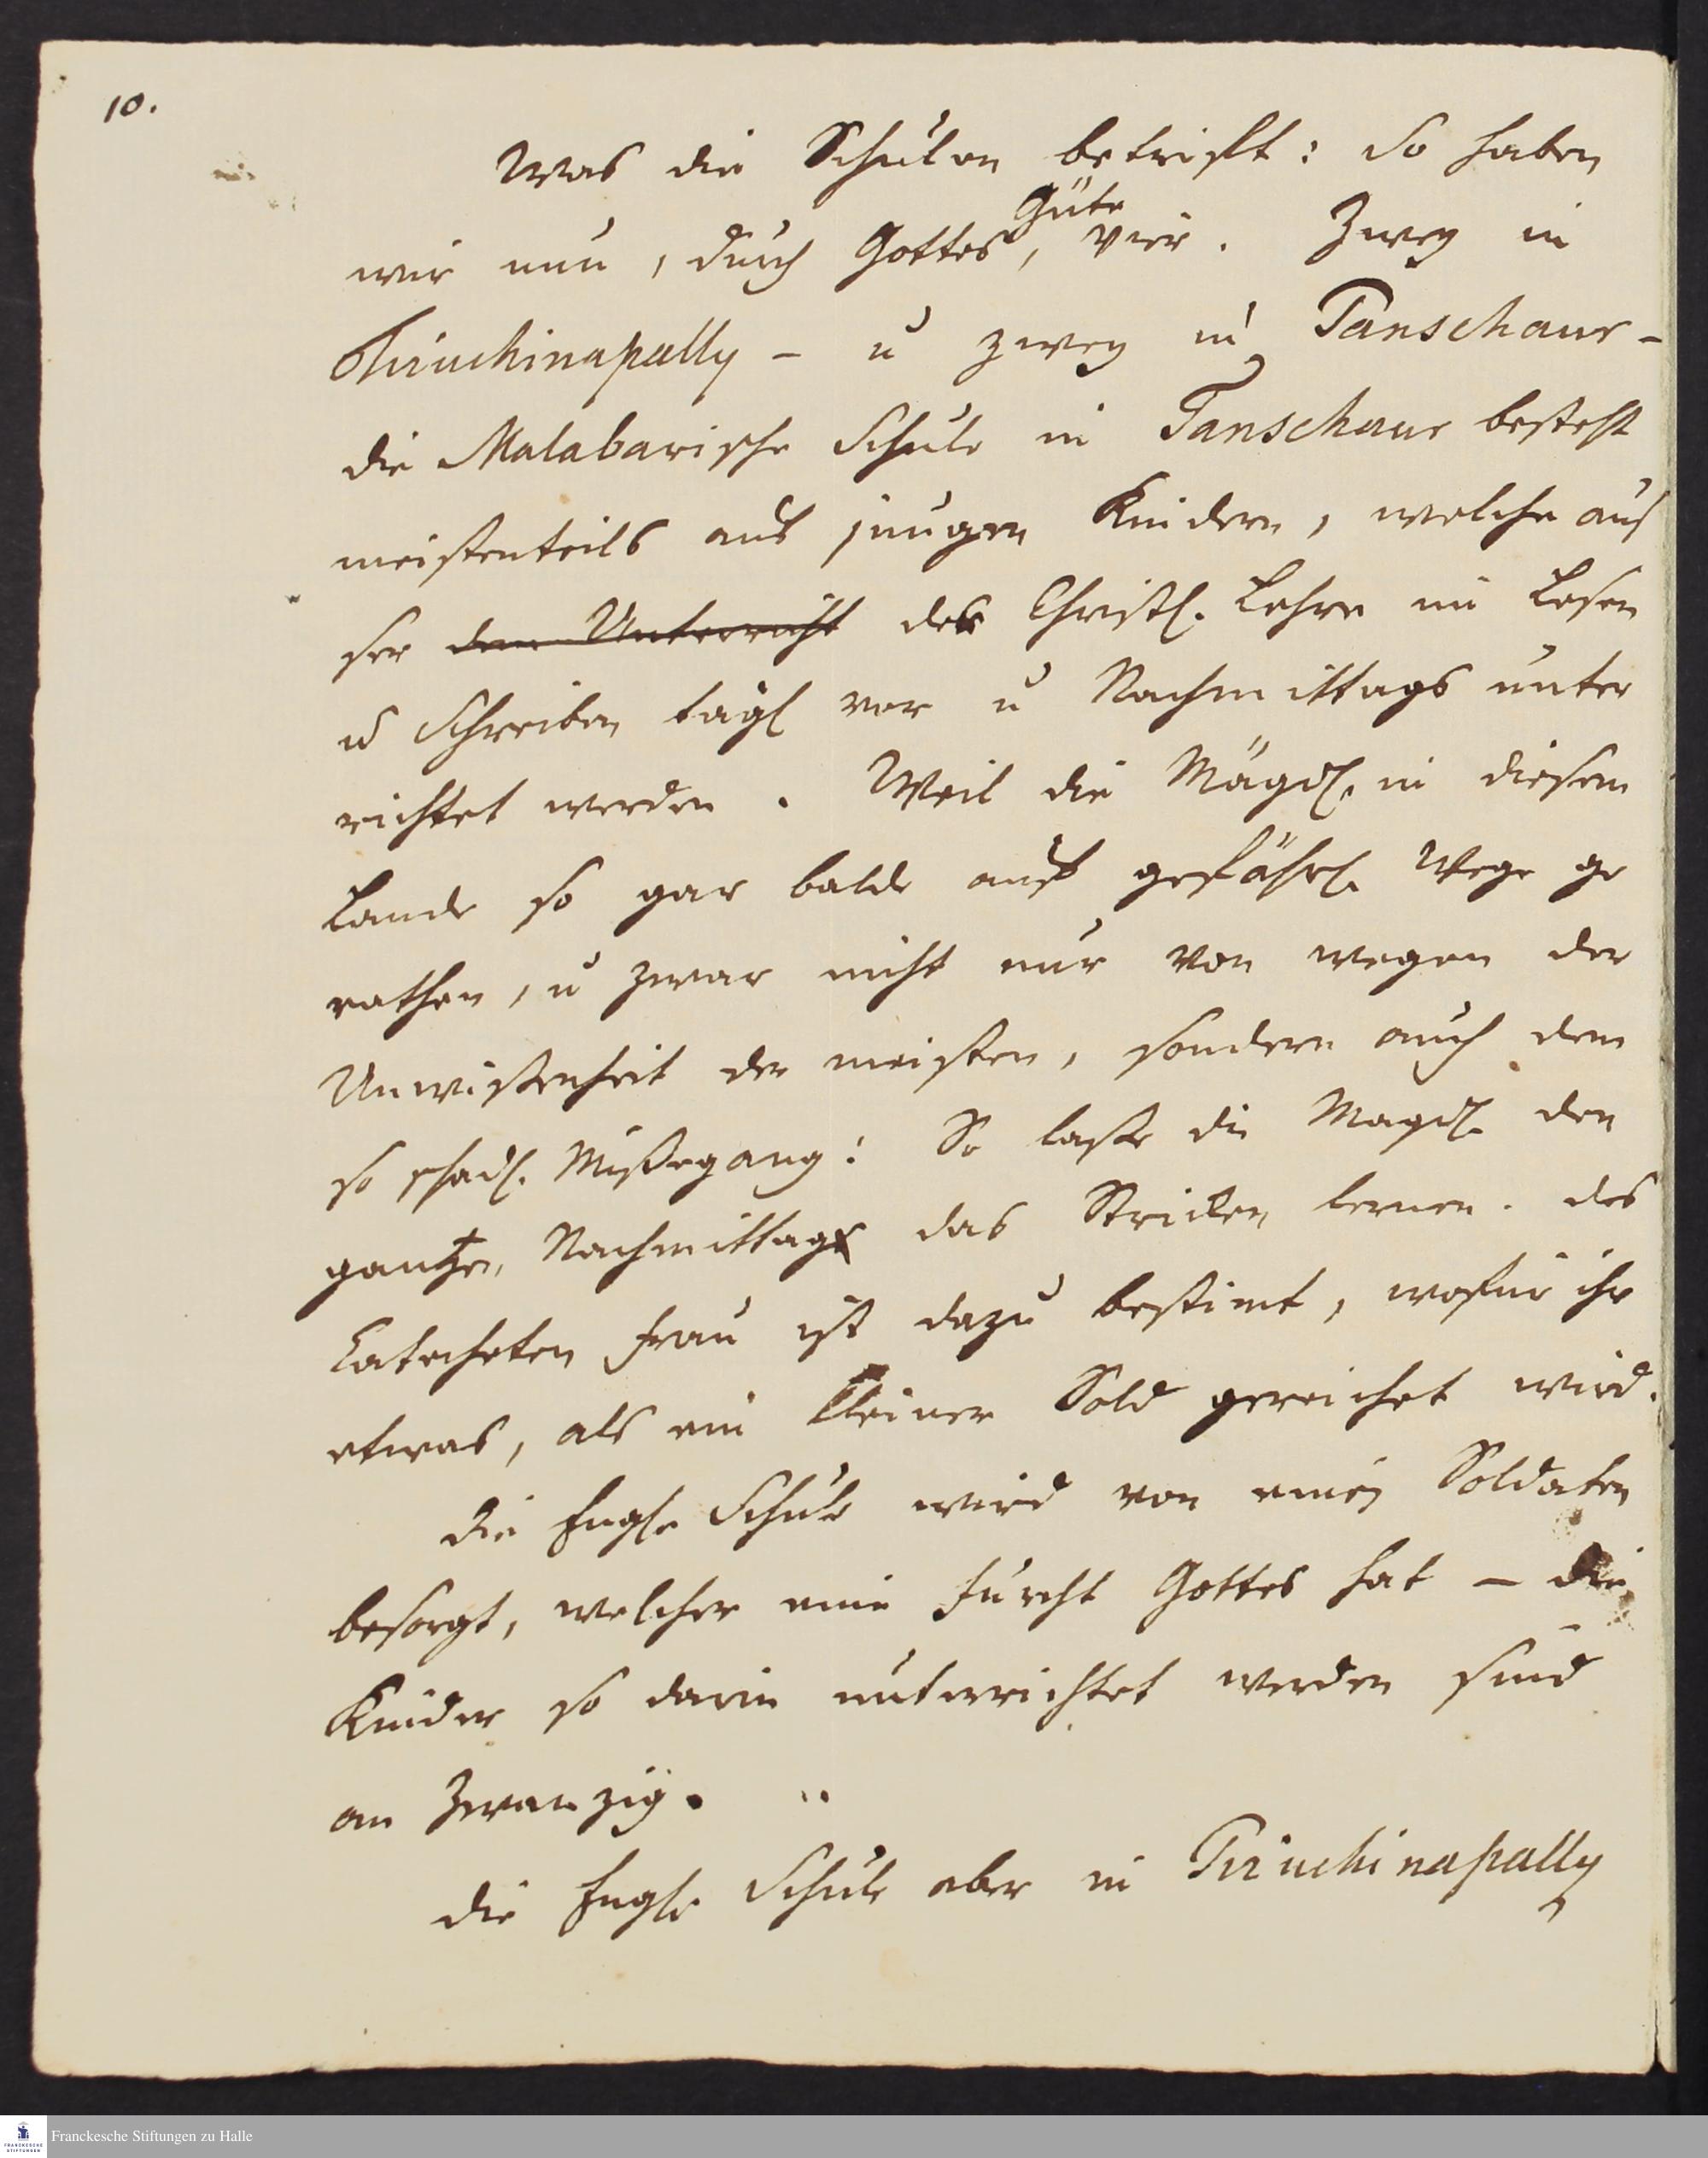 10.
Was die Schulen betrifft: So haben
Güte
wir nun, durch Gottes, vier. Zwey in
Tiruchinapally - u zwey in Tanschaur -
die Malabarische Schule in Tanschaur besteht
meistenteils aus jungen Kindern, welche aus
ser dem Unterricht der Christl. Lehre im Lesen
u Schreiben tägl vor u Nachmittags unter
richtet werden. Weil die Mägdl. in diesem
Lande so gar balde auf gefährl. Wege ge
rathen, u zwar nicht nur von wegen der
Unwissenheit der meisten, sondern auch dem
so schädl. Müßegang: So lasse die Magdl. den
gantzen Nachmittag das Stricken lernen. des
Catecheten Frau ist dazu bestimt, wofür ihr
etwas, als ein kleiner Sold gereichet wird.
die Engl. Schule wird von einem Soldaten
besorgt, welcher eine Furcht Gottes hat - die
Kinder so darin unterrichtet werden sind
an Zwanzig.
die Engl. Schule aber in Tiruchinapally
Franckesche Stiftungen zu Halle
FRANCKESCHE
STIFTUNGEN